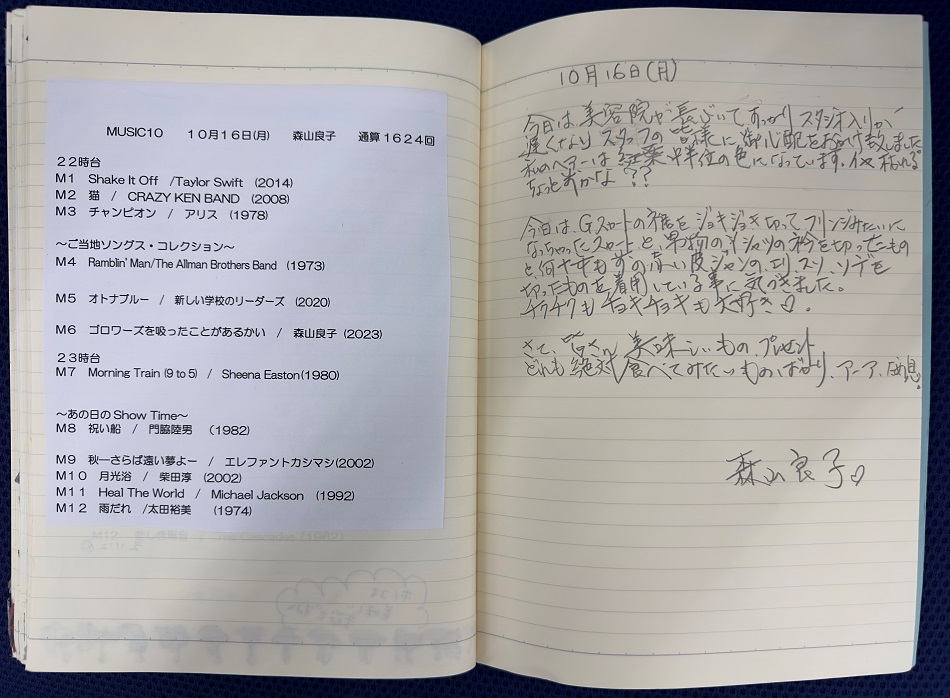 MUSIC10 10月16日(月) 森山良子 通算1624回
22時台
M1 Shake It Off /Taylor Swift (2014)
M2 猫 / CRAZY KEN BAND (2008)
M3 チャンピオン / アリス (1978)
～ご当地ソングス・コレクション～
M4 Ramblin' Man/The Allman Brothers Band (1973)
M5 オトナブルー / 新しい学校のリーダーズ (2020)
M6 ゴロワーズを吸ったことがあるかい / 森山良子 (2023)
23時台
M7 Morning Train (9 to 5) / Sheena Easton(1980)
～あの日の Show Time～
M8 祝い船 / 門脇陸男 (1982)
M9 秋―さらば遠い夢よー / エレファントカシマシ(2002)
M10 月光浴 / 柴田淳 (2002)
M11 Heal The World / Michael Jackson (1992)
M12 雨だれ /太田裕美 (1974)
10月16日(月)
今日は美容院が長びいてすっかりスタジオ入りが
遅くなりスタッフの皆様に御心配をおかけ致しました
私のヘアーは紅葉中半位の色になっています。
ちょっと早かな??
今日は、Gスカートの裾をジョキジョキ切ってフリンジみたいに
なっちゃったスカートと、早物のYシャツの衿を切ったもの
と、何十年も前の赤い皮ジャンの、エリ、スソ、ソデを
切ったものを着用している事に気づきました。
チクチクもチョキチョキも大好き♡。
さて、皆さん美味しいもの、プレゼント
どれも絶対食べてみたいものばかり、アーア、
森山良子♡